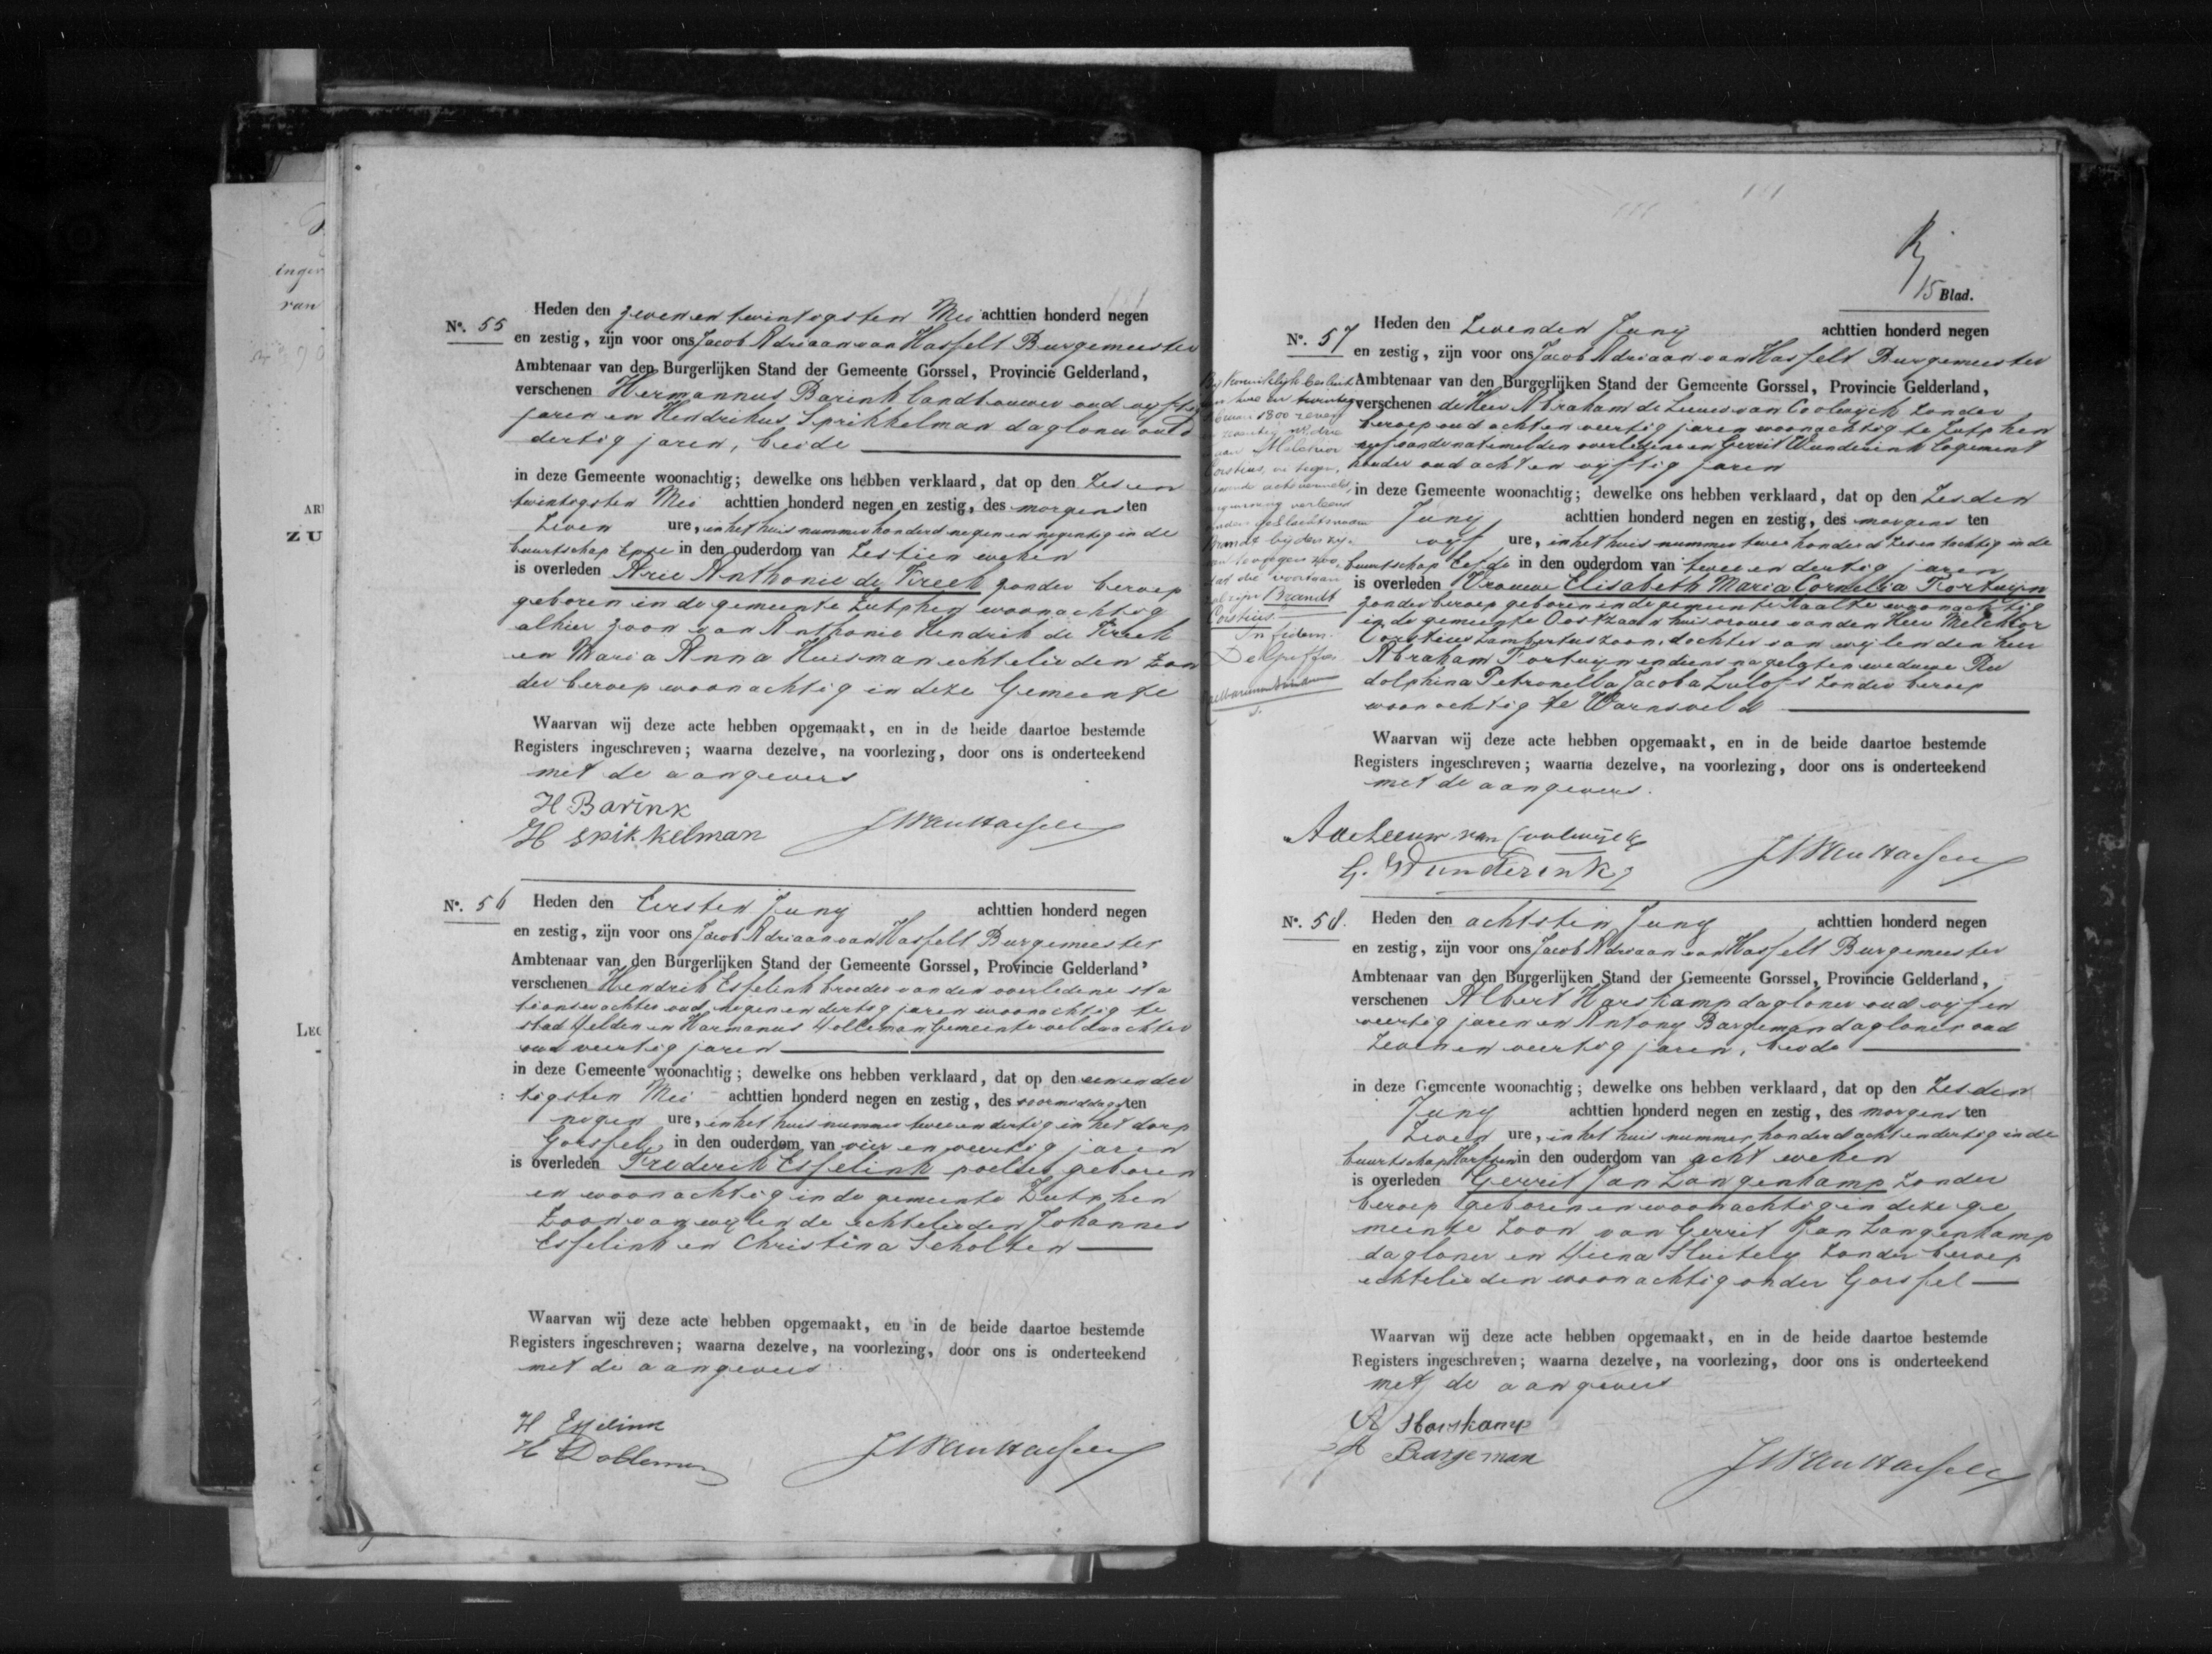 N°. 55
Heden den zeven en twintigsten Mei achttien honderd negen
en zestig, zijn voor ons Jacob Adriaan van Hasselt Burgemeester
Ambtenaar van den Burgerlijken Stand der Gemeente Gorssel, Provincie Gelderland,
verschenen Hermannus Barink landbouwer oud vyftig
jaren en Hendrikus Sprikkelman dagloner oud
dertig jaren, beide
in deze Gemeente woonachtig; dewelke ons hebben verklaard, dat op den zes en
twintigsten Mei achttien honderd negen en zestig, des morgens ten
zeven ure, in het huis nummer honderd negen en negentig in de
buurtschap Epse in den ouderdom van zestien weken
is overleden Arie Anthonie de Kreek zonder beroep
geboren in de gemeente Zutphen woonachtig
alhier zoon van Anthonie Hendrik de Kreek
en Maria Anna Huisman echtelieden zon
der beroep woonachtig in deze Gemeente
Waarvan wij deze acte hebben opgemaakt, en in de beide daartoe bestemde
Registers ingeschreven; waarna dezelve, na voorlezing, door ons is onderteekend
met de aangevers
H Barink
H sprikkelman JAvanHasselt
N°. 56
Heden den Eersten Juny achttien honderd negen
en zestig, zijn voor ons Jacob Adriaan van Hasselt Burgemeester
Ambtenaar van den Burgerlijken Stand der Gemeente Gorssel, Provincie Gelderland,
verschenen Hendrik Esselink broeder van den overledene sta
tionswachter oud negen en dertig jaren woonachtig te
stad Delden en Harmanus Dolleman Gemeente veldwachter
oud veertig jaren
in deze Gemeente woonachtig; dewelke ons hebben verklaard, dat op den een en der
tigsten Mei achttien honderd negen en zestig, des voormiddags ten
negen ure, in het huis nummer twee en dertig in het dorp
Gorssel, in den ouderdom van vier en veertig jaren
is overleden Frederik Esselink poelier geboren
en woonachtig in de gemeente Zutphen
zoon van wylen de echtelieden Johannes
Esselink en Christina Scholten
Waarvan wij deze acte hebben opgemaakt, en in de beide daartoe bestemde
Registers ingeschreven; waarna dezelve, na voorlezing, door ons is onderteekend
met de aangevers
H Esselink
H Dolleman JAvanHasselt
15 Blad.
N°. 57
Heden den Zevenden Juny achttien honderd negen
en zestig, zijn voor ons Jacob Adriaan van Hasselt Burgemeester
Ambtenaar van den Burgerlijken Stand der Gemeente Gorssel, Provincie Gelderland,
verschenen de Heer Abraham de Leeuw van Coolwyck zonder
beroep oud acht en veertig jaren woonachtig te Zutphen
neef van de natemelden overledene en Gerrit Wunderink logement
houder oud acht en vyftig jaren
in deze Gemeente woonachtig; dewelke ons hebben verklaard, dat op den Zesden
Juny achttien honderd negen en zestig, des morgens ten
vyf ure, in het huis nummer twee honderd zes en tachtig in de
buurtschap Eefde in den ouderdom van twee en dertig jaren
is overleden Vrouwe Elisabeth Maria Cornellia Fortuyn
zonder beroep geboren in de gemeente Raalte woonachtig
in de gemeente Oostzaan huisvrouw van den Heer Melchior
Corstius Lambertuszoon, dochter van wylen den heer
Abraham Fortuyn en diens nagelaten weduwe Ru
dolphina Petronella Jacoba Lulofs zonder beroep
woonachtig te Warnsveld
By Koninklyk besluit
van twee en twintig
1800 zeven
Melchior
Corstius,
verleend
geslachtsnaam
Brandt by den zy-
nen te voegen zoo
dat die voortaan
zal zijn Brandt
Corstius.
In fidem
Waarvan wij deze acte hebben opgemaakt, en in de beide daartoe bestemde
Registers ingeschreven; waarna dezelve, na voorlezing, door ons is onderteekend
met de aangevers.
AdeLeeuw van Coolwijck
G. Wunderink JAvanHasselt
N°. 58.
Heden den achtsten Juny achttien honderd negen
en zestig, zijn voor ons Jacob Adriaan van Hasselt Burgemeester
Ambtenaar van den Burgerlijken Stand der Gemeente Gorssel, Provincie Gelderland,
verschenen Albert Harskamp dagloner oud vyf en
veertig jaren en Antony Bargeman dagloner oud
zeven en veertig jaren, beide
in deze Gemeente woonachtig; dewelke ons hebben verklaard, dat op den Zesden
Juny achttien honderd negen en zestig, des morgens ten
zeven ure, in het huis nummer honderd acht en dertig in de
buurtschap Harfsen in den ouderdom van acht weken
is overleden Gerrit Jan Langenkamp zonder
beroep geboren en woonachtig in deze ge
meente zoon van Gerrit Jan Langenkamp
dagloner en Hena Sluitely zonder beroep
echtelieden woonachtig onder Gorssel
Waarvan wij deze acte hebben opgemaakt, en in de beide daartoe bestemde
Registers ingeschreven; waarna dezelve, na voorlezing, door ons is onderteekend
met de aangevers
A Harskamp
A Bargeman JAvanHasselt